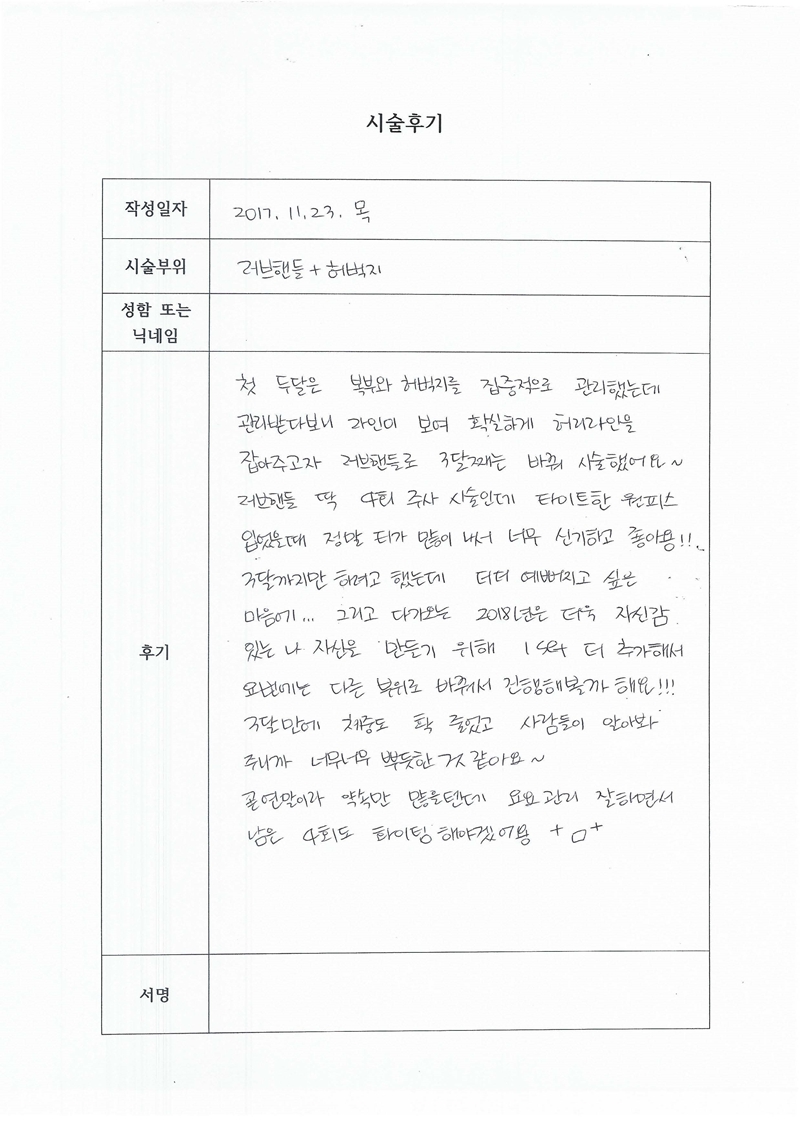 시술후기
작성일자 2017. 11. 23. 목
시술부위 러브핸들 + 허벅지
성함 또는
닉네임
후기
첫 두달은 복부와 허벅지를 집중적으로 관리했는데
관리받다보니 라인이 보여 확실하게 허리라인을
잡아주고자 러브핸들로 3달째는 바꿔 시술했어요~
러브핸들 딱 4회 주사 시술인데 타이트한 원피스
입었을때 정말 티가 많이 나서 너무 신기하고 좋아용!!
3달까지만 하려고 했는데 더더 예뻐지고 싶은
마음에... 그리고 다가오는 2018년은 더욱 자신감
있는 나 자신을 만들기 위해 1 set 더 추가해서
요번에는 다른 부위로 바꿔서 진행해볼까 해요!!!
3달만에 체중도 확 줄었고 사람들이 알아봐
주니까 너무너무 뿌듯한 것 같아요~
곧 연말이라 약속만 많을텐데 요요관리 잘하면서
남은 4회도 화이팅 해야겠어용 +ㅁ+
서명